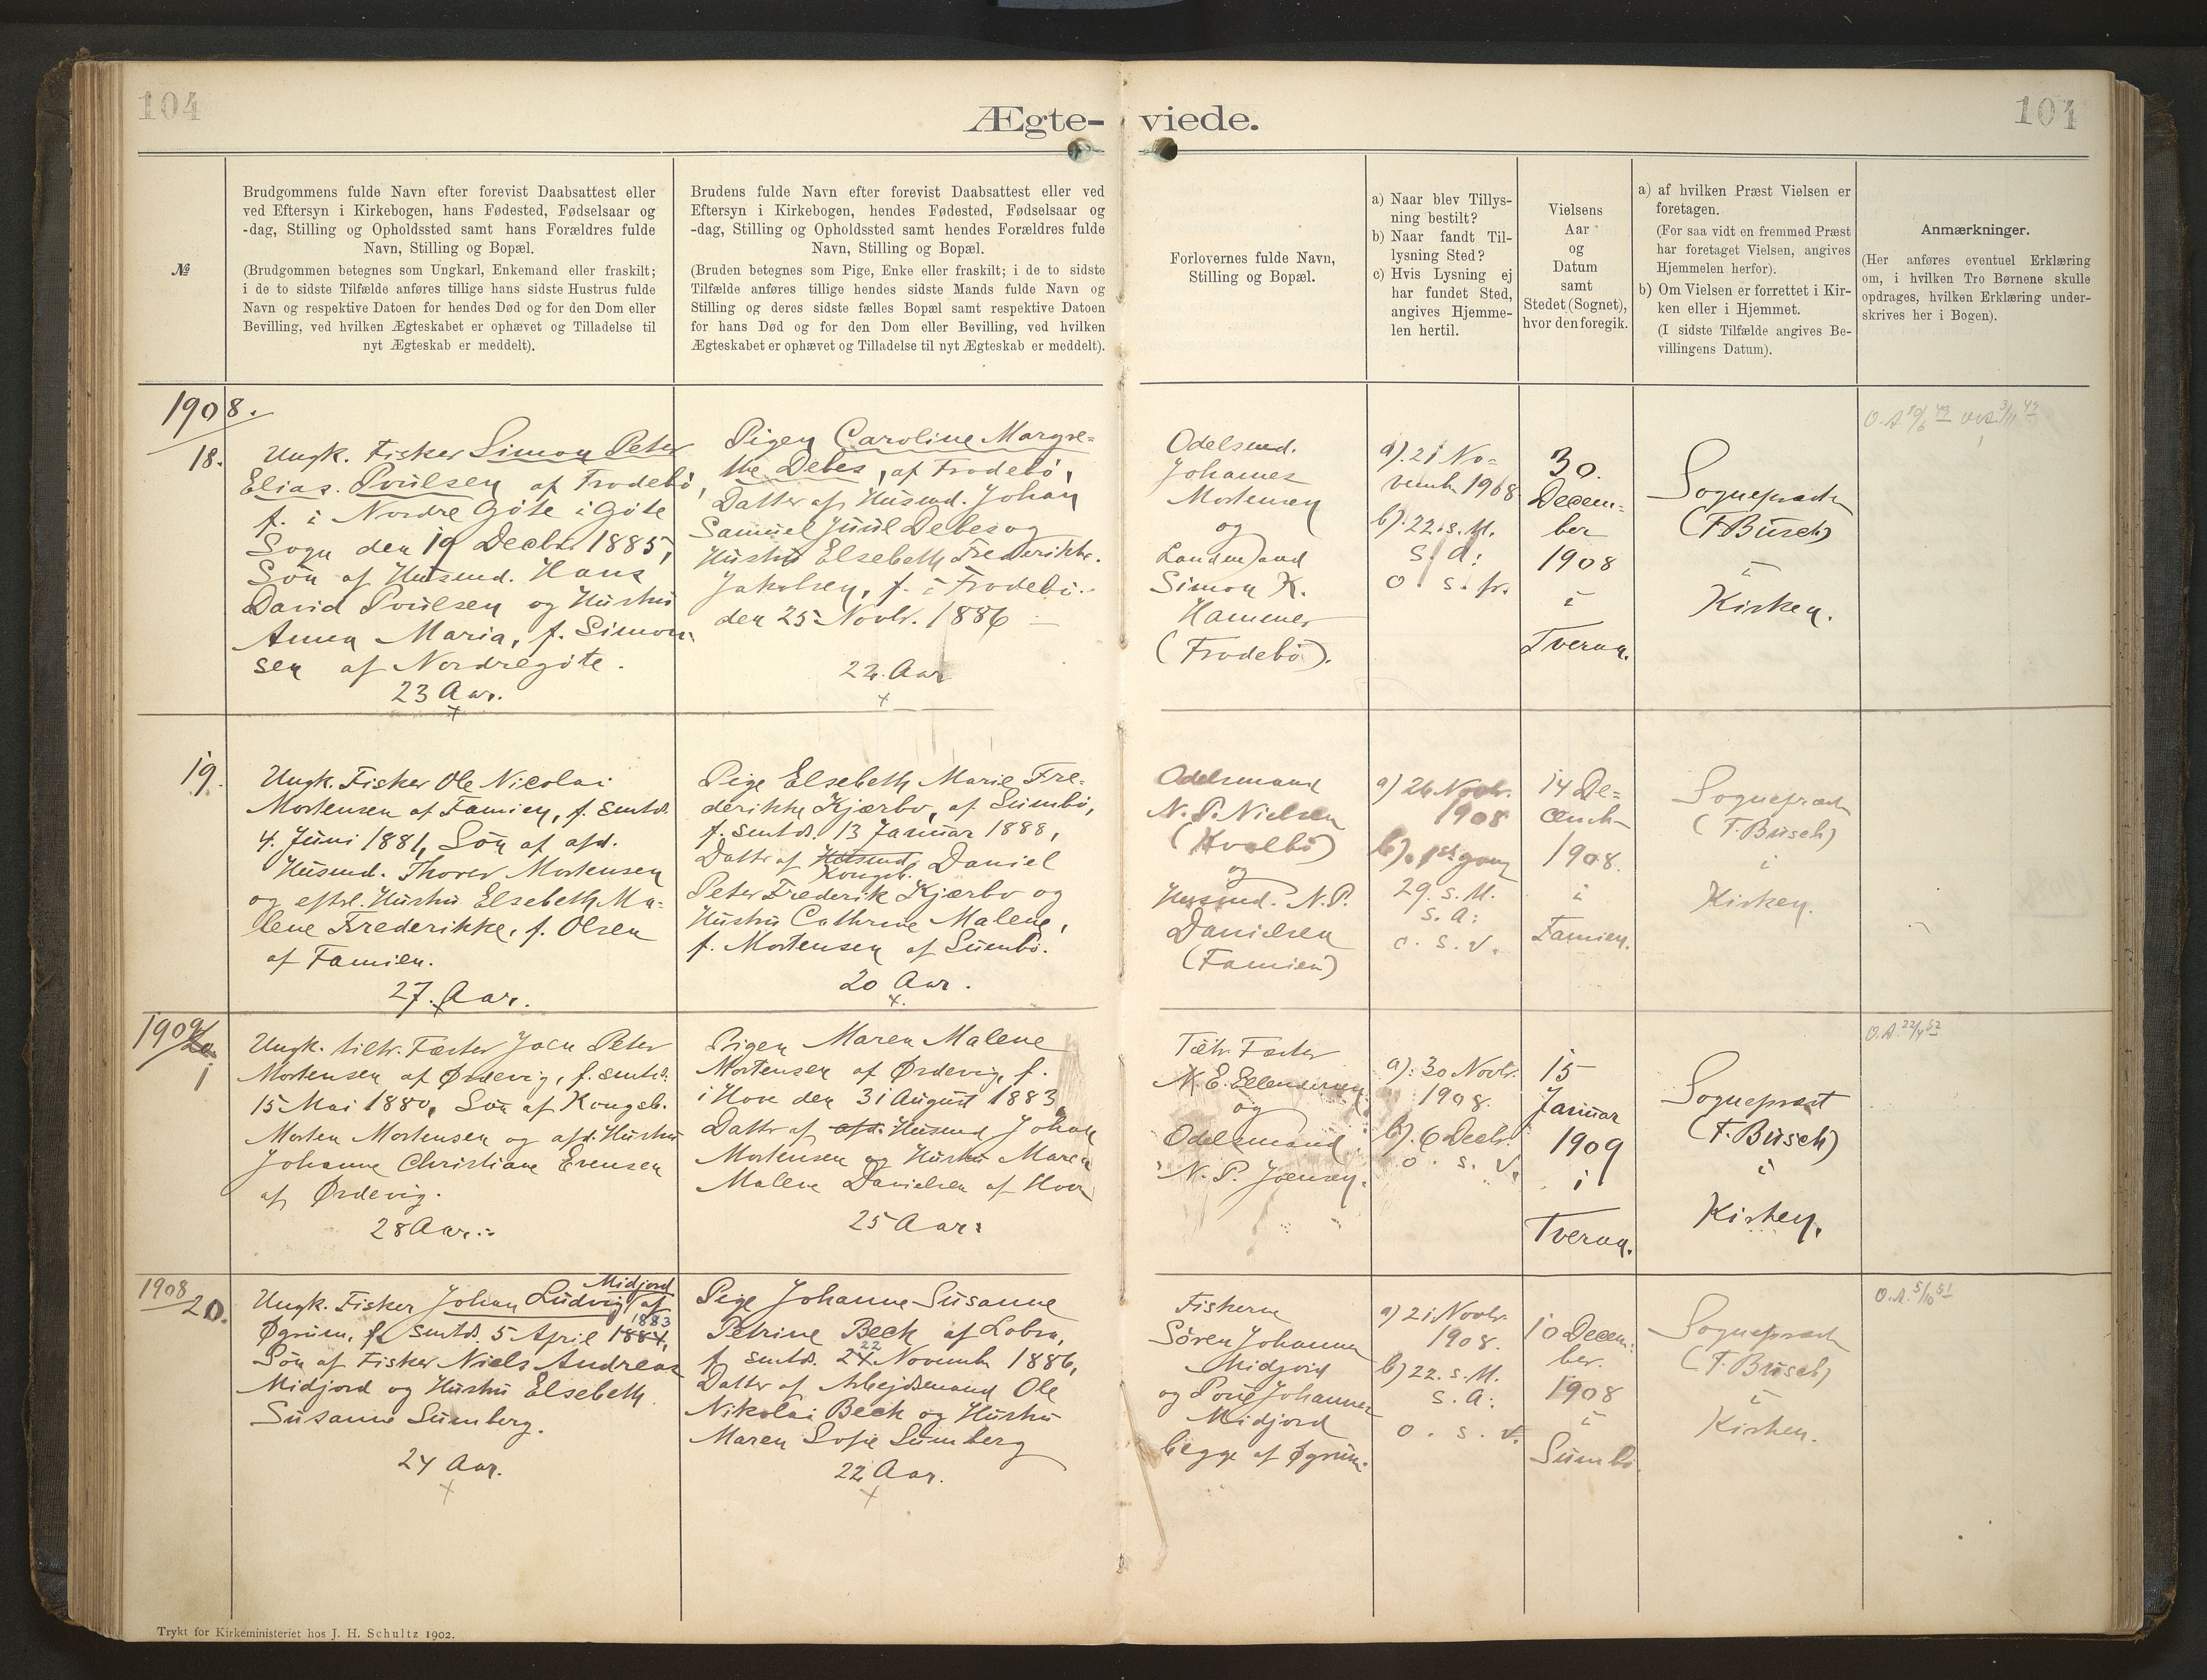 104
Ægte-
viede.
104
№
Brudgommens fulde Navn efter forevist Daabsattest eller
ved Eftersyn i Kirkebogen, hans Fødested, Fødselsaar og
-dag, Stilling og Opholdssted samt hans Forældres fulde
Navn, Stilling og Bopæl.
(Brudgommen betegnes som Ungkarl, Enkemand eller fraskilt;
i de to sidste Tilfælde anføres tillige hans sidste Hustrus fulde
Navn og respektive Datoen for hendes Død og for den Dom eller
Bevilling, ved hvilken Ægteskabet er ophævet og Tilladelse til
nyt Ægteskab er meddelt).
Brudens fulde Navn efter forevist Daabsattest eller ved
Eftersyn i Kirkebogen, hendes Fødested, Fødselsaar og
-dag, Stilling og Opholdssted samt hendes Forældres fulde
Navn, Stilling og Bopæl.
(Bruden betegnes som Pige, Enke eller fraskilt; i de to sidste
Tilfælde anføres tillige hendes sidste Mands fulde Navn og
Stilling og deres sidste fælles Bopæl samt respektive Datoen
for hans Død og for den Dom eller Bevilling, ved hvilken
Ægteskabet er ophævet og Tilladelse til nyt Ægteskab er meddelt).
Forlovernes fulde Navn,
Stilling og Bopæl.
a) Naar blev Tillys-
ning bestilt?
b) Naar fandt Til-
lysning Sted?
c) Hvis Lysning ej
har fundet Sted,
angives Hjemme-
len hertil.
Vielsens
Aar
og
Datum
samt
Stedet (Sognet),
hvor den foregik.
a) af hvilken Præst Vielsen er
foretagen.
(For saa vidt en fremmed Præst
har foretaget Vielsen, angives
Hjemmelen herfor).
b) Om Vielsen er forrettet i Kir-
ken eller i Hjemmet.
(I sidste Tilfælde angives Be-
villingens Datum).
Anmærkninger.
(Her anføres eventuel Erklæring
om, i hvilken Tro Børnene skulle
opdrages, hvilken Erklæring under-
skrives her i Bogen).
1908.
18.
Ungk. Fisker Simon Peter
Elias Poulsen af Frodebö,
f. i Nordre Göte i Göte
Sogn den 19 Decbr. 1885,
Sön af Husmd. Hans
David Poulsen og Hustru
Anna Maria, f. Simon-
sen af Nordregöte.
23 Aar.
Pigen Caroline Margre-
the Debes, af Frodebö,
Datter af Husmd. Johan
Samuel Juul Debes og
Hustru Elsebeth Frederikke
Jakobsen, f. i Frodebö
den 25 Novbr. 1886
22 Aar
Odelsmd.
Johannes
Mortensen
og
Landmand
Simon K.
Hammer
(Frodebö).
a). 21 No-
vemb. 1908
b). 22. s. M.
s. A:
o. s. fr.
30.
Decem-
ber
1908
i
Tveraa.
Sognepræst
(F. Busch)
i
Kirken.
O.A. 10/6 49
19.
Ungk. Fisker Ole Nicolai
Mortensen af Famien, f. smtds.
4. Juni 1881, Sön af afd.
Husmd. Thorer Mortensen
og eftrl. Hustru Elsebeth Ma-
lene Frederikke, f. Olsen
af Famien.
27. Aar.
Pige Elsebeth Marie Fre-
derikke Kjærbo, af Sumbö,
f. smtds. 13 Januar 1888,
Datter af Husmd. Daniel
Kongsb.
Peter Frederik Kjærbo og
Hustru Cathrine Malene,
f. Mortensen af Sumbö.
20 Aar.
Odelsmand
N. P. Nielsen
(Hvalbö)
og
Husmd. N. P.
Danielsen
(Famien)
a) 26 Novbr.
1908
b). 1ste gang
29. s. M.
s. A:
o. s. v.
14 De-
cemb.
1908.
i
Famien.
Sognepræst
(F. Busch)
i
Kirken.
1909
20.
1
Ungk. tiltr. Fæster Joen Peter
Mortensen af Ördevig, f. smtds.
15 Mai 1880, Sön af Kongsb.
Morten Mortensen og afd. Hustru
Johanne Christiane Evensen
af Ördevig.
28 Aar.
Pigen Maren Malene
Mortensen af Ördevig, f.
i Hove den 31 August 1883,
Datter af afd. Husmd Johan
Mortensen og Hustru Maren
Malene Danielsen af Hove
25 Aar:
Tiltr. Fæster
M. E. Ellendersen
og
Odelsmand
N. P. Joensen.
a). 30 Novbr.
1908.
b). 6 Decbr.
o. s. v.
15
Januar
1909
i
Tveraa.
Sognepræst
(F. Busch)
i
Kirken.
O.A. 22/4 52
1908
20.
Midjord
Ungk. Fisker Johan Ludvig af
1883
Øgrum, f. smtds. 5 April 1884,
Sön af Fisker Niels Andreas
Midjord og Hustru Elsebeth
Susanne Sumberg.
24 Aar.
Pige Johanne Susanne
Petrine Beck af Lobra,
22
f. smtds. 24. November 1886,
Datter af Arbejdsmand Ole
Nikolai Beck og Hustru
Maren Sofie Sumberg
22 Aar.
Fiskerne
Sören Johannes
Midjord
og Poul Johannes
Midjord
begge af Øgrum.
a) 21 Novbr.
1908.
b) 22. s. M.
s. A:
o. s. v.
10 Decem-
ber.
1908
i
Sumbö.
Sognepræst
(F. Busch)
i
Kirken.
O.A. 5/10 51
Trykt for Kirkeministeriet hos J. H. Schultz 1902.